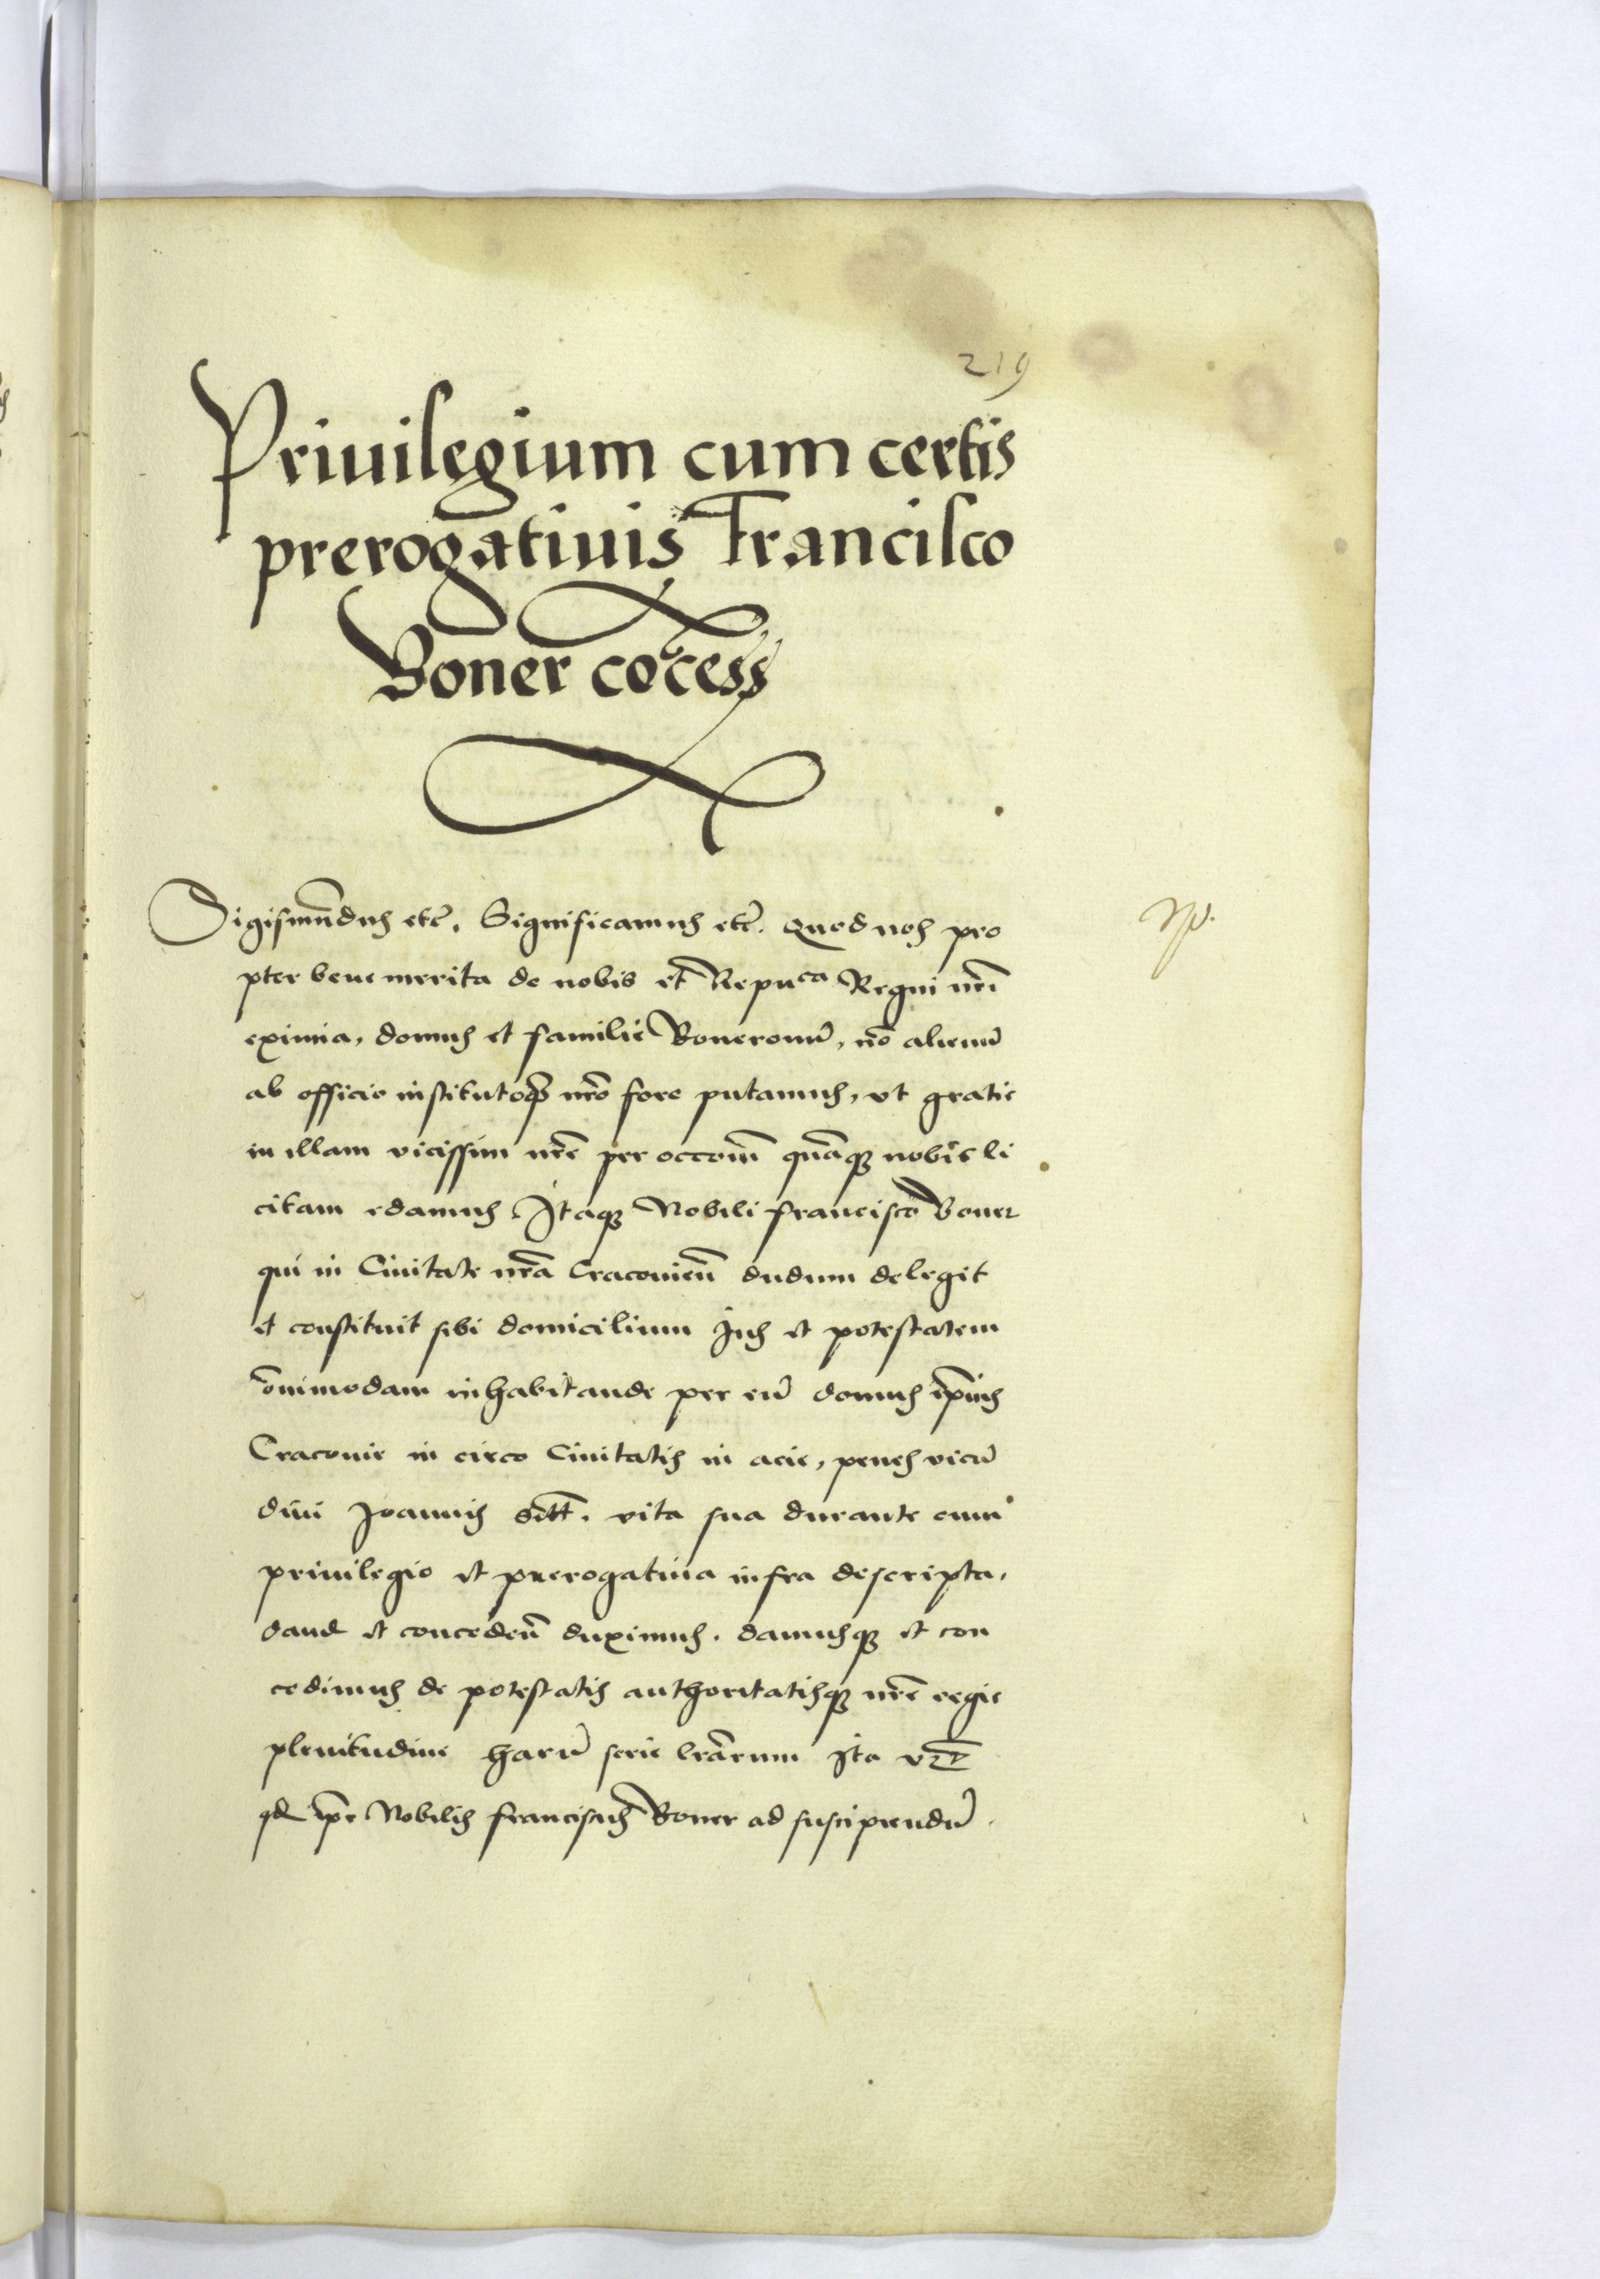 219
Priuilegium cum certis
prerogatiuis Francisco
Boner cōcess
Sigismūdus etc̄. Significamus etc̄. Quod nos pro
pter bene merita de nobis et Repuca Regni nrī
eximia, domus et familie Bonerorum̄, nō alienū
ab officio institutoq̧ nrō fore putamus, vt gratie
in illam vicissim nrē per occom̄ quāq̧ nobis li
citam edamus Itaq̧ Nobili Francisco Boner
qui in Ciuitate nrā Cracouien̄ dudum delegit
et constituit sibi domicilium Jus et potestatem
ōnimodam inhabitande per eū domus ipīus
Cracouie in circo Ciuitatis in acie, penes vicū
diui Joannis sitt̄. vita sua durante cum
priuilegio et prerogatiua infra descripta,
dand et conceden̄ duximus. damusq̧ et con
cedimus de potestatis authoritatisq̧ nrē regie
plenitudine harū serie lrārum Ita
qd ipē Nobilis Franciscus Boner ad suscipiendū.